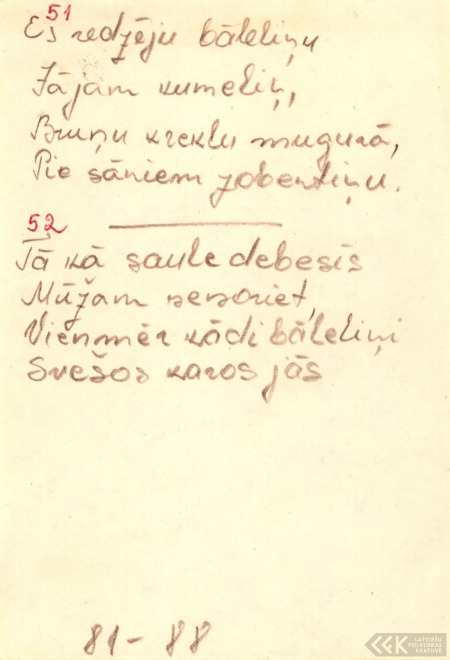 51
Es redzēju bāleliņu
Jājam kumeliņ,
Bruņu kreklu mugurā,
Pie sāniem zobentiņu.
52
Tā kā saule debesīs
Mūžam nenoriet,
Vienmēr kādi bāleliņi
Svešos karos jās
81-88
LATVIEŠU
FOLKLORAS
KRĀTUVE